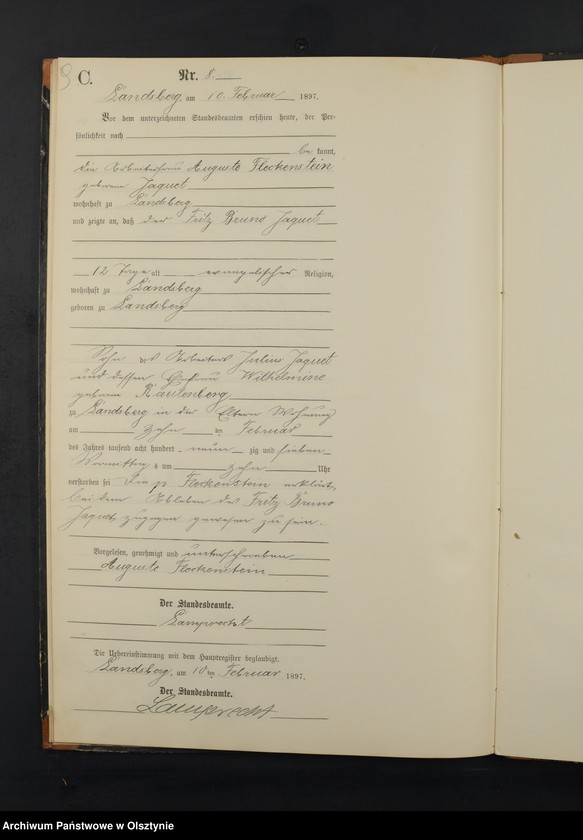 8
C.
Nr. 8.
Landsberg, am 10. Februar 1897.
Vor dem unterzeichneten Standesbeamten erschien heute, der Per-
sönlichkeit nach
be kannt,
die Arbeiterfrau Auguste Fleckenstein
geborene Jaquet
wohnhaft zu Landsberg
und zeigte an, daß der Fritz Bruno Jaquet
12 Tage alt evangelischer Religion,
wohnhaft zu Landsberg
geboren zu Landsberg
Sohn des Arbeiters Julius Jaquet
und dessen Ehefrau Wilhelmine
geborene Rautenberg
zu Landsberg in der Eltern Wohnung
am zehn ten Februar
des Jahres tausend acht hundert neun zig und sieben
Vormittags um zehn Uhr
verstorben sei Die p Fleckenstein erklärte,
bei dem Ableben des Fritz Bruno
Jaquet zugegen gewesen zu sein.
Vorgelesen, genehmigt und unterschrieben
Auguste Fleckenstein
Der Standesbeamte.
Lamprecht
Die Uebereinstimmung mit dem Hauptregister beglaubigt.
Landsberg, am 10 ten Februar 1897.
Der Standesbeamte.
Lamprecht
Archiwum Państwowe w Olsztynie